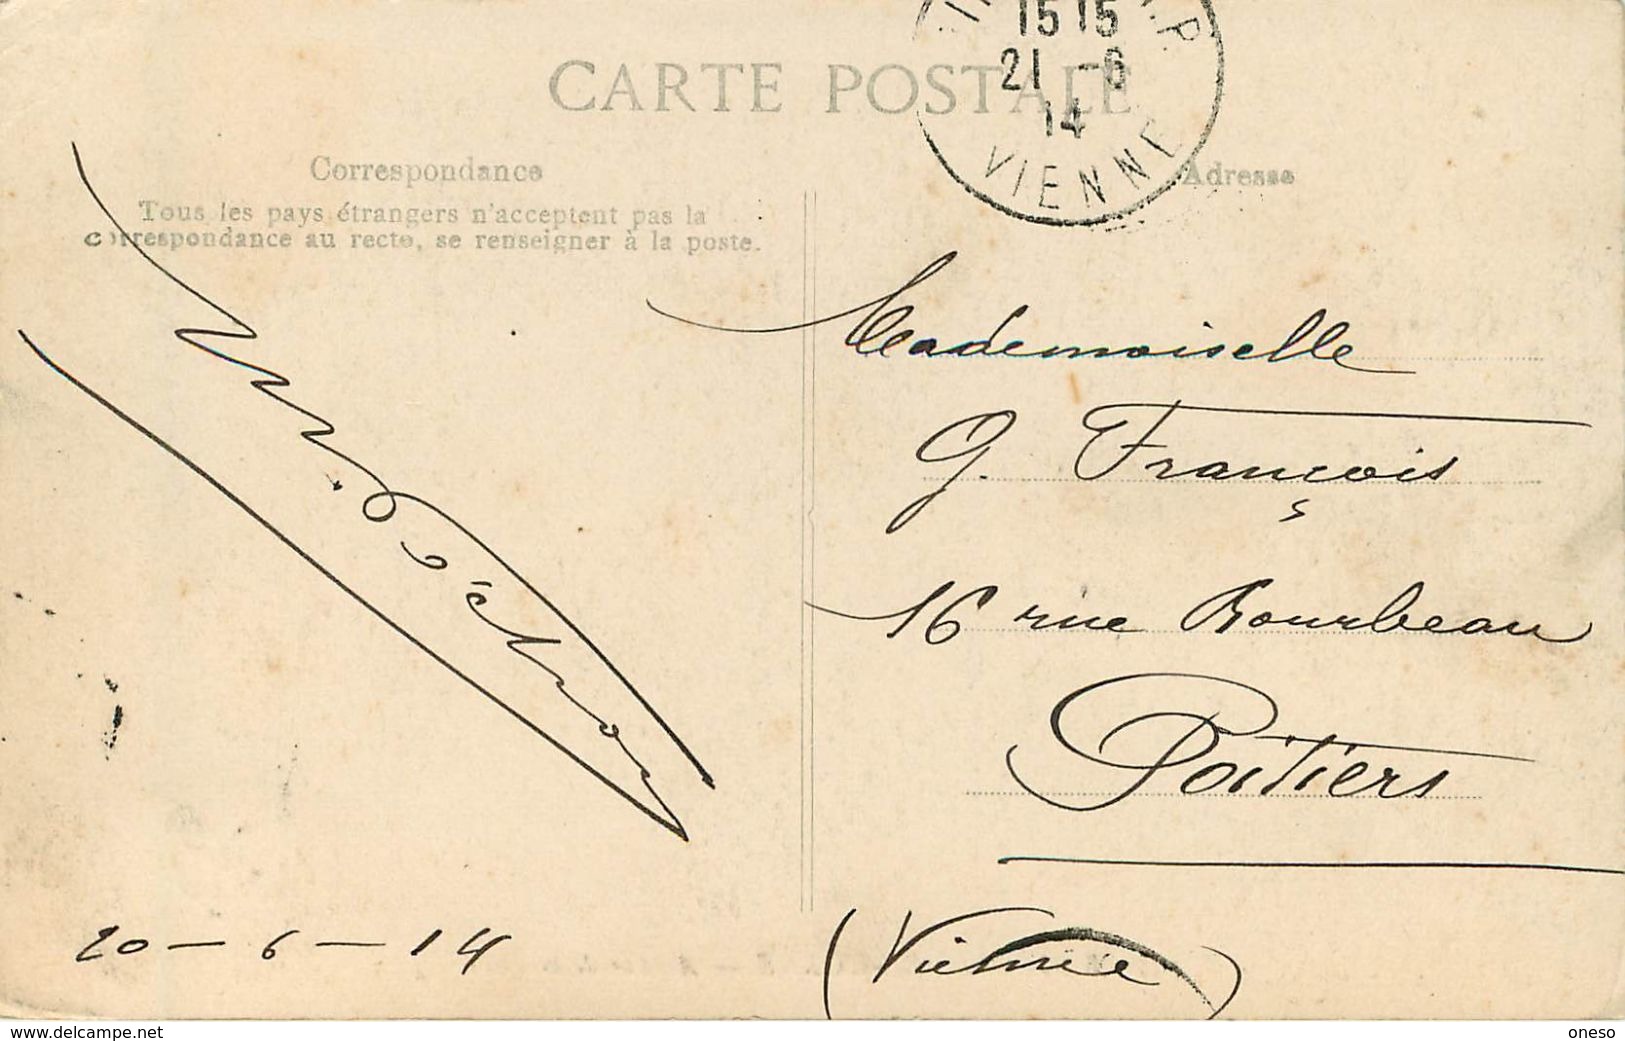 CARTE POSTALE
15 15
21 -6
14
VIENNE
Correspondance
Tous les pays étrangers n'acceptent pas la
correspondance au recto, se renseigner à la poste.
Adresse
Mademoiselle
G. François
16 rue Bourbeau
Poitiers
(Vienne)
20 - 6 - 14
www.delcampe.net
oneso